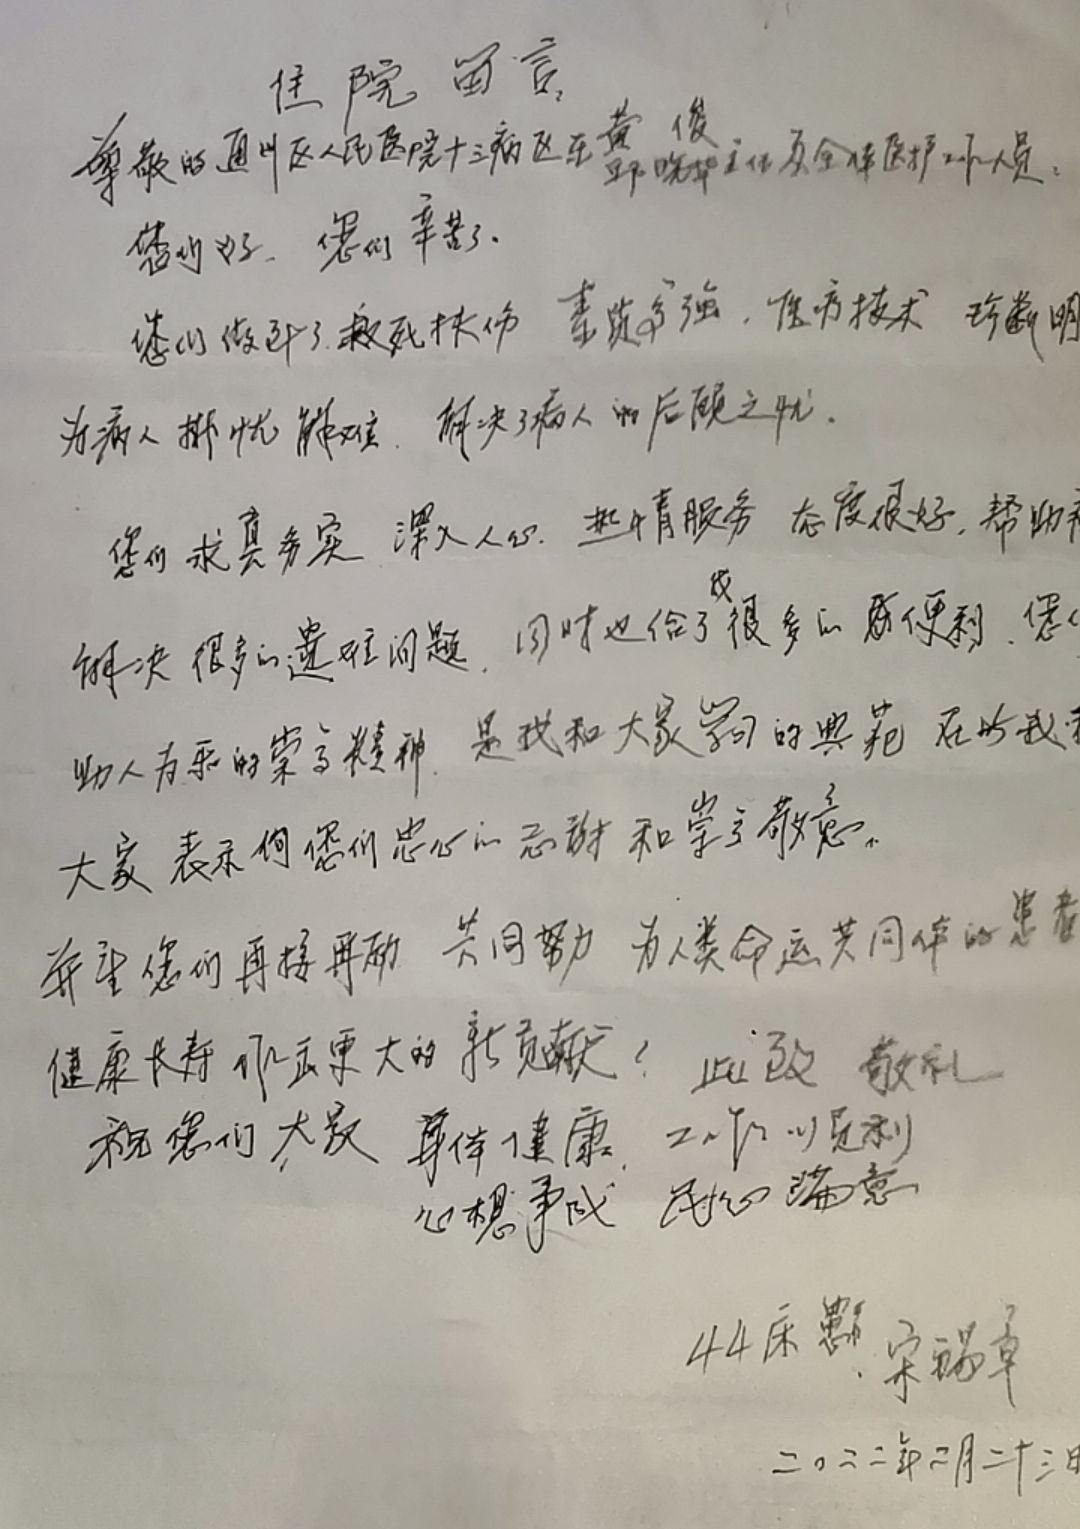 住院留言
黄俊
尊敬的通川区人民医院十三病区主任主任及全体医护工作人员：
您们好、您们辛苦了。
您们做到了救死扶伤 素质高强，医疗技术 珍断明
为病人排忧解难、解决了病人的后顾之忧。
您们求真务实 深入人心、热情服务 态度很好，帮助
找
解决很多的遗难问题，同时也给了很多的 便利、您
助人为乐的崇高精神，是我和大家学习的典范 在此我
大家表示何您们忠心的感谢和崇高敬意。
并望您们再接再励 共同努力 为人类命运共同体的患者
健康长寿作出更大的新贡献！ 此致 敬礼
祝您们大家 身体健康，工作顺利
心想事成 民心满意
44床患者 宋锡章
二0二二年二月二十三日